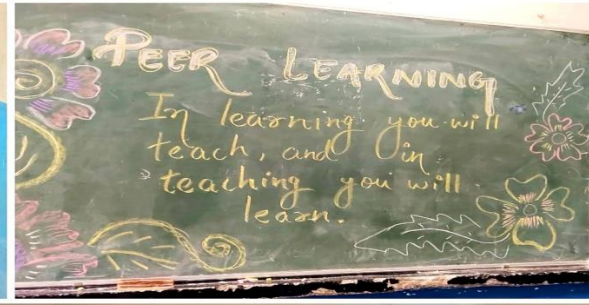 PEER LEARNING
In learning you will
teach, and in
teaching you will
learn.